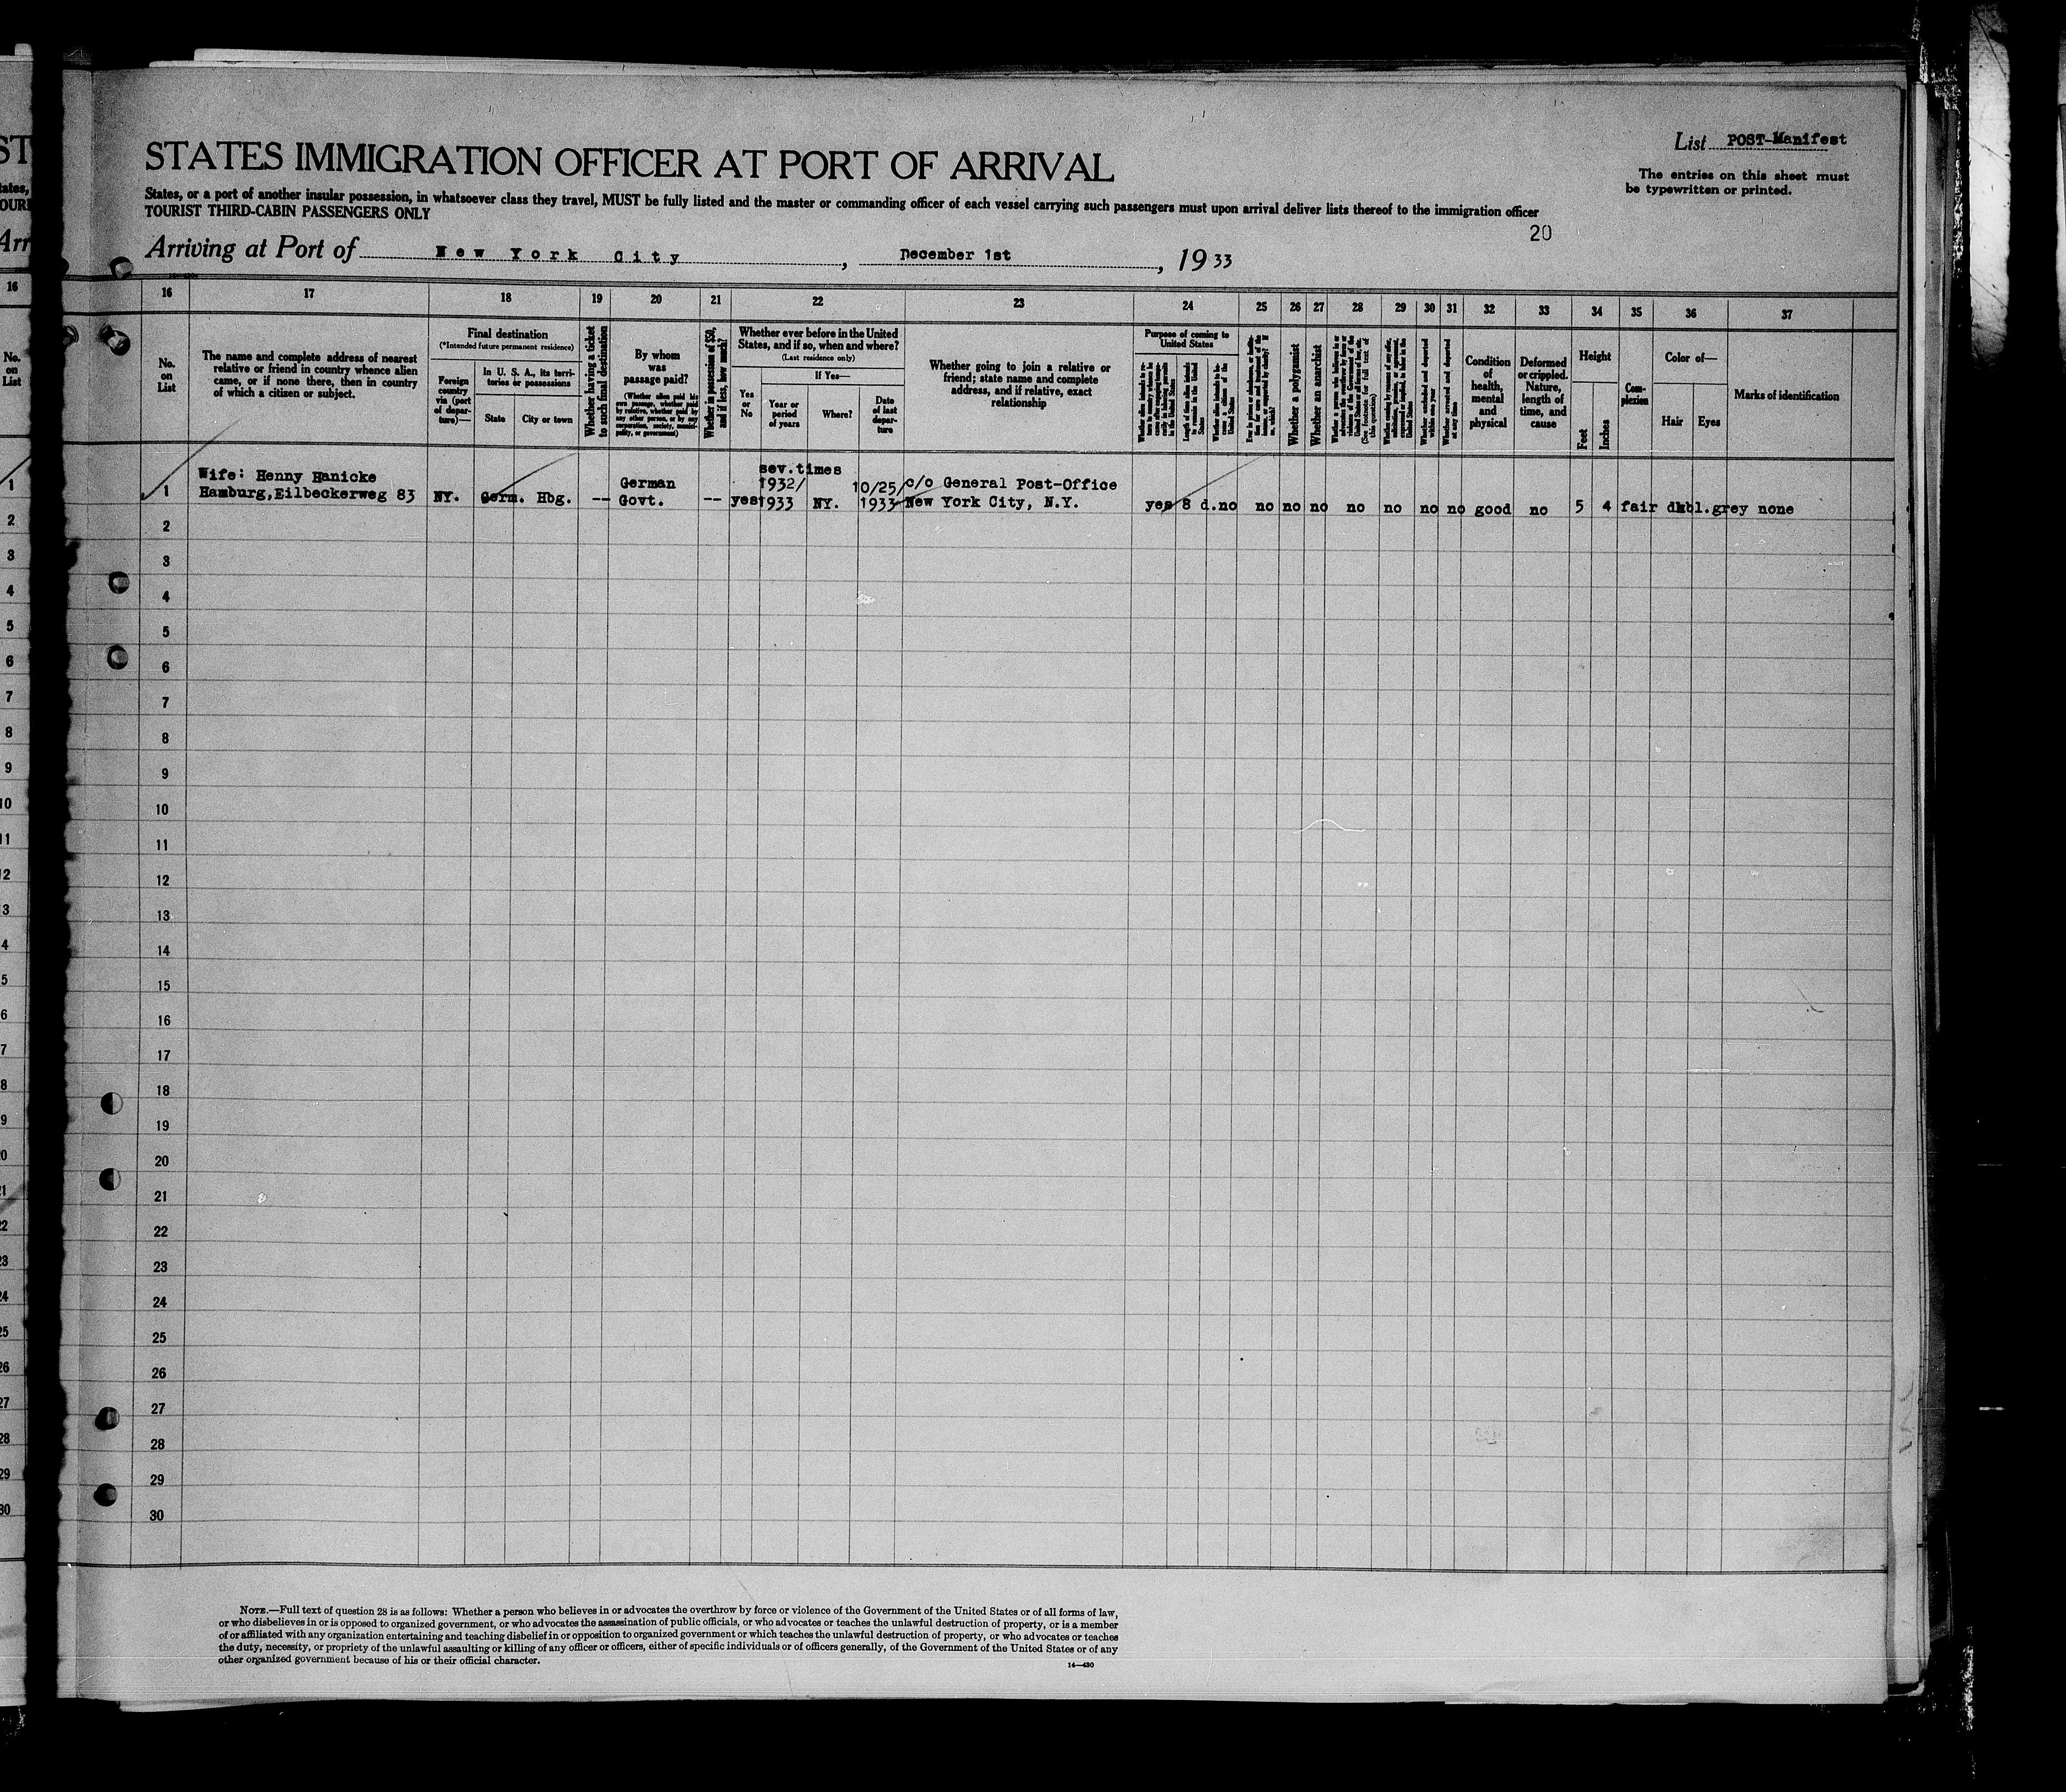 List POST-Manifest
STATES IMMIGRATION OFFICER AT PORT OF ARRIVAL
The entries on this sheet must
be typewritten or printed.
States, or a port of another insular possession, in whatsoever class they travel, MUST be fully listed and the master or commanding officer of each vessel carrying such passengers must upon arrival deliver lists thereof to the immigration officer
TOURIST THIRD-CABIN PASSENGERS ONLY
20
Arriving at Port of New York City, December 1st, 1933
16 17 18 19 20 21 22 23 24 25 26 27 28 29 30 31 32 33 34 35 36 37
No.
on
List
The name and complete address of nearest
relative or friend in country whence alien
came, or if none there, then in country
of which a citizen or subject.
Final destination
(*Intended future permanent residence)
Foreign
country
via (port
of depar-
ture)—
In U. S. A., its terri-
tories or possessions
State
City or town
Whether having a ticket
to such final destination
By whom
was
passage paid?
(Whether alien paid his
own passage, whether paid
by relative, whether paid by
any other person, or by any
corporation, society, munici-
pality, or government)
Whether in possession of $50,
and if less, how much?
Whether ever before in the United
States, and if so, when and where?
(Last residence only)
Yes
or
No
If Yes—
Year or
period
of years
Where?
Date
of last
depar-
ture
Whether going to join a relative or
friend; state name and complete
address, and if relative, exact
relationship
Purpose of coming to
United States
Length of time alien intends
to remain in the United
States
Whether a polygamist
Whether an anarchist
(See footnote for full text of
this question)
Whether excluded and deported
within one year
Whether arrested and deported
at any time
Condition
of
health,
mental
and
physical
Deformed
or crippled.
Nature,
length of
time, and
cause
Height
Feet
Inches
Com-
plexion
Color of—
Hair
Eyes
Marks of identification
sev.times
Wife: Henny Hanicke German 1932/ 10/25/ c/o General Post-Office
1 Hamburg,Eilbeckerweg 83 NY. Germ. Hbg. -- Govt. -- yes 1933 NY. 1933 New York City, N.Y. yes 8 d. no no no no no no no no good no 5 4 fair dkbl. grey none
2
3
4
5
6
7
8
9
10
11
12
13
14
15
16
17
18
19
20
21
22
23
24
25
26
27
28
29
30
NOTE.—Full text of question 28 is as follows: Whether a person who believes in or advocates the overthrow by force or violence of the Government of the United States or of all forms of law,
or who disbelieves in or is opposed to organized government, or who advocates the assassination of public officials, or who advocates or teaches the unlawful destruction of property, or is a member
of or affiliated with any organization entertaining and teaching disbelief in or opposition to organized government or which teaches the unlawful destruction of property, or who advocates or teaches
the duty, necessity, or propriety of the unlawful assaulting or killing of any officer or officers, either of specific individuals or of officers generally, of the Government of the United States or of any
other organized government because of his or their official character.
14—430